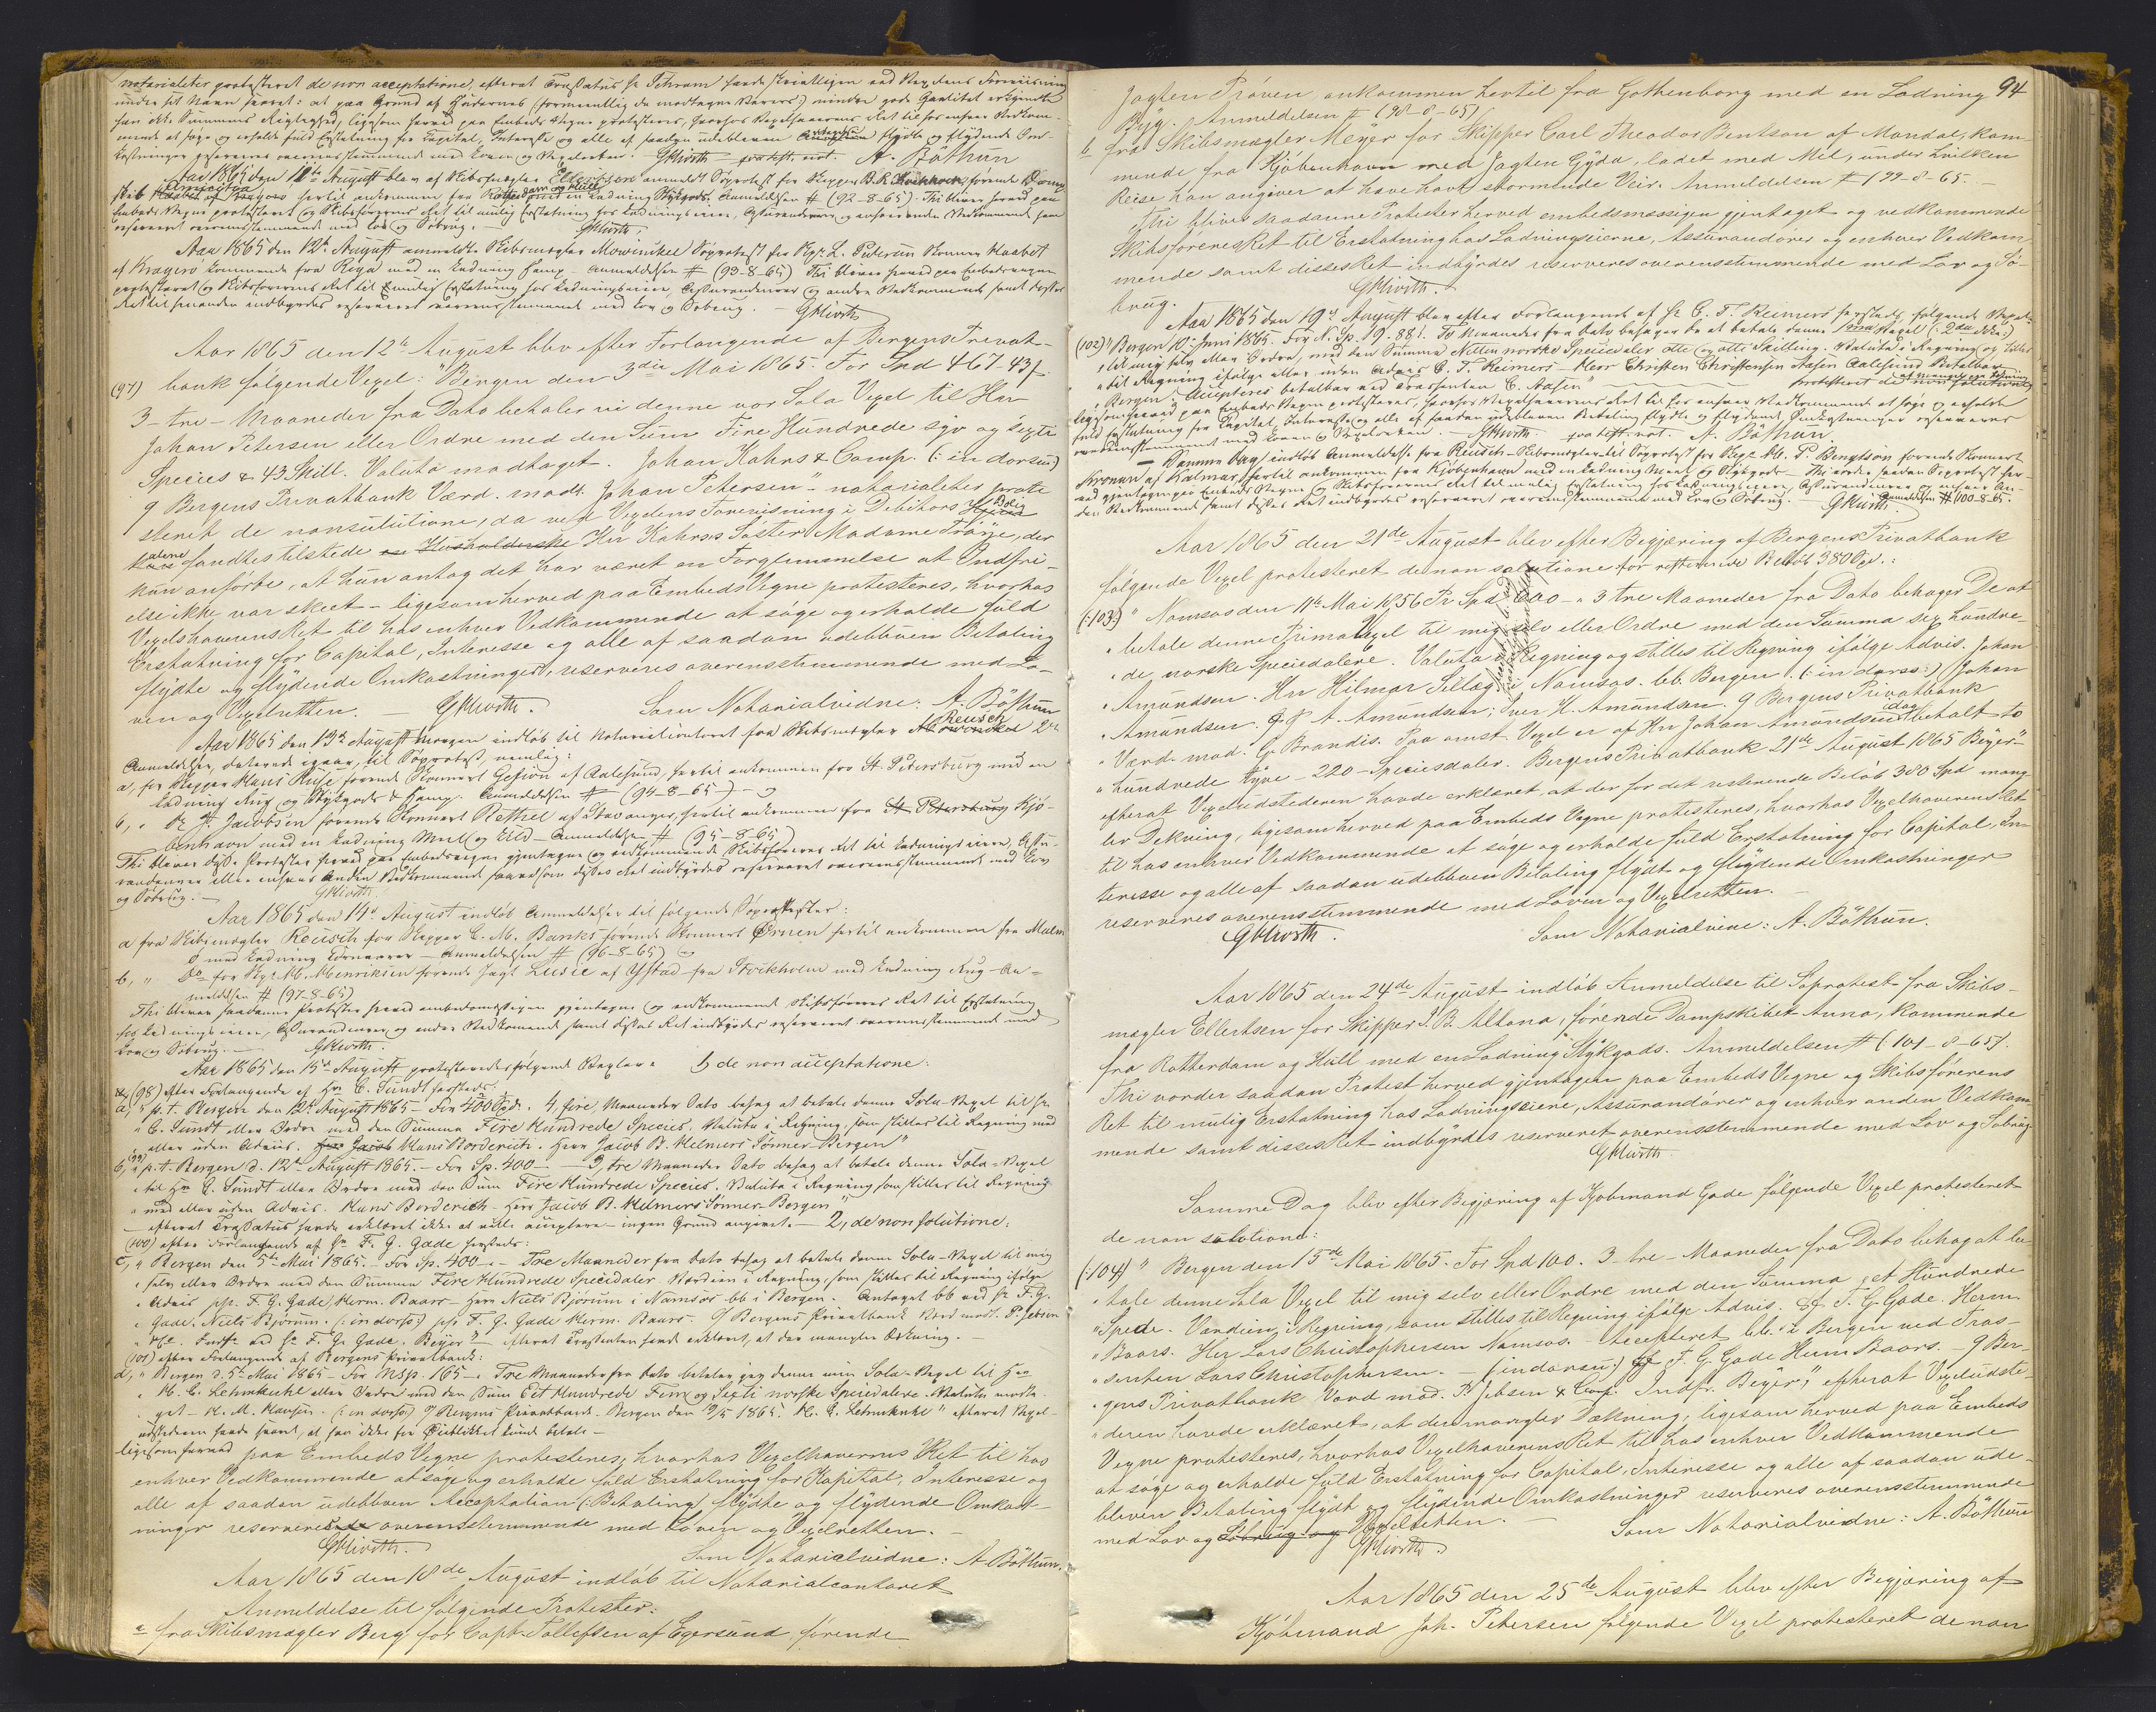 notarialiter protesteret de non acceptatione, efterat Trassatus Hr Schram havde skriftligen ved Vexelens Foreviisning
under sit Navn svaret: at paa Grund af Hudernes (formeentlig de modtagne Varers) mindre gode Qvalitet erkjendte
han ikke Summens Rigtighed, ligesom herved paa Embeds Vegne protesteres, hvorhos Vexelhaverens Ret til hos enhver Vedkom-
mende at søge og erholde fuld Erstatning for Capital, Interesse og alle af saadan udebleven Acceptation flydte og flydende Om-
kostninger reserveres overensstemmende med Loven og Vexelretten. GKlivoth not. A. Böthun
Aar 1865 den 12te August blev af Skibsmægler Ellertsen anmeldt Søprotest for Skipper B. R. førende Damp-
skib Almicitva hertil ankommen fra Rotterdam og Hull med en Ladning Stykgods. Anmeldelsen # (92-8-65). Thi bliver herved paa
Embeds Vegne protesteret og Skibsførerens Ret til mulig Erstatning hos Ladningseierne, Assurandeurer og enhver anden Vedkommende samt
reserveret overensstemmende med Lov og Søbrug. - GKlivoth.
Aar 1865 den 12te August anmeldte Skibsmægler Mowinckel Søprotest for Skpr. L. Pedersen Skonnert Haabet
af Kragerö kommende fra Riga med en Ladning Hamp - Anmeldelsen # (93-8-65) Thi bliver herved paa Embedsvegne
protesteret og Skibsførerens Ret til mulig Erstatning hos Ladningseiere, Assurandeurer og andre Vedkommende samt disses
Ret til hinanden indbyrdes reserveret overensstemmende med Lov og Søbrug. - GKlivoth
Aar 1865 den 12te August blev efter Forlangende af Bergens Privat-
(97) bank følgende Vexel: "Bergen den 3die Mai 1865. For Spd 467-43/.
3-tre- Maaneder fra Dato betaler vi denne vor Sola Vexel til Herr
Johan Petersen eller Ordre med den Sum Fire Hundrede syv og sexti
Species & 43 Skill. Valuta modtaget. Johan Kahrs & Comp. (: in dorsu)
q Bergens Privatbank Værd. modt. Johan Petersen" - notarialiter prote
steret de nonsulutione, da ved Vexelens Forevisning i Debitors Bolig
alene fandtes tilstede Hushalderske Hr Kahrs's Søster Madame Frøye, der
kun anførte, at hun antog det har været en Forglemmelse at Indfri-
else ikke var skeet - ligesom herved paa Embeds Vegne protesteres, hvorhos
Vexelshaverens Ret til hos enhver Vedkommende at søge og erholde fuld
Erstatning for Capital, Interesse og alle af saadan udebleven Betaling
flydte og flydende Omkostninger, reserveres overensstemmende med Lo-
ven og Vexelretten. - GKlivoth. Som Notarialvidne: A. Böthun
Aar 1865 den 13de August Morgen indløb til Notarialcontoret fra Skibsmægler Reusch 2de
Anmeldelser, daterede igaar, til Søprotest, nemlig:
a, for Skipper Hans Huse, førende Skonnert Gefion af Aalesund, hertil ankommen fra St. Petersburg med en
Ladning Rug og Stykgods & Hamp. Anmeldelsen # (94-8-65) -
b, " Do H. Jacobsen førende Skonnert Rethel af Stavanger, hertil ankommen fra St Petersburg Kjö-
benhavn med en Ladning Meel og Sild - Anmeldelsen # (95-8-65)
Thi bliver disse Protester herved paa Embedsvegne gjentagne og vedkommende Skibsføreres Ret til Ladningseiere, Assu-
randeurer eller enhver Anden Vedkommende saavelsom disses Ret indbyrdes reserveret overensstemmende med Lov
og Søbrug. - GKlivoth
Aar 1865 den 14de August indløb Anmeldelser til følgende Søprotester:
a fra Skibsmægler Reusch for Skipper C. M. Banks førende Skonnert Ørnen hertil ankommen fra Malm
ö med Ladning Kornvarer - Anmeldelsen # (96-8-65)
b, " Do for Skpr. M. Henriksen førende Jagt Lucie af Ystad fra Stockholm med Ladning Rug - An-
meldelsen # (97-8-65)
Thi bliver saadanne Protester herved embedsmæssigen gjentagne og vedkommende Skibsføreres Ret til Erstatning
hos Ladningseiere, Assurandeurer og andre Vedkommende samt disses Ret indbyrdes reserveret overensstemmende med
Lov og Søbrug. - GKlivoth.
Aar 1865 den 15de August protesteredes følgende Vexler: 1, de non acceptatione:
(98) efter Forlangende af Hr C. Sundt hersteds:
a, " p. t. Bergen den 12te August 1865 - For 400 Spdr. 4, fire, Maaneder Dato behag at betale denne Sola-Vexel til Hr
" C. Sundt eller Ordre med den Summa Fire Hundrede Species. Valuta i Regning, som stilles til Regning med
" eller uden Advis. Hans Borderich. Herr Jacob B. Helmers Sönner Bergen"
(99)
b, " p. t. Bergen d. 12te August 1865. - For Sp. 400 - 3, tre Maaneder Dato behag at betale denne Sola-Vexel
" til Hr C. Sundt eller Ordre med den Sum Fire Hundrede Species. Valuta i Regning, som stilles til Regning
" med eller uden Advis. Hans Borderich - Herr Jacob B. Helmers Sönner - Bergen"
- efterat Trassatus havde erklæret ikke at ville acceptere - ingen Grund angivet. - 2, de non solutione:
(100) efter Forlangende af Hr F. G. Gade hersteds:
c, " Bergen den 5te Mai 1865. - For Sp. 400 - Tre Maaneder fra Dato behag at betale denne Sola-Vexel til mig
" selv eller Ordre med den Summa Fire Hundrede Speciedaler. Værdien i Regning, som stilles til Regning ifølge
" Advis p/p. F. G. Gade, Herm. Baars - Herr Niels Bjórum i Namsos bb i Bergen. Antaget bb ved Hr F. G.
" Gade. Niels Bjórum. (: in dorso) p/p F. G. Gade Herm. Baars. - q/ Bergens Privatbank Værd modt. P. Jebsen
" & Co. Indfr. ved Hr F. G. Gade. Beyer" - efterat Trassenten havde erklæret, at der mangler Dækning. -
(101) efter Forlangende af Bergens Privatbank:
d, " Bergen d. 5te Mai 1865 - For NSp. 165 - Tre Maaneder fra Dato betaler jeg denne min Sola-Vexel til Herr
" H. C. Lehmkuhl eller Ordre med den Sum Eet Hundrede Fem og Sexti norske Speciedalere. Valuta modta-
get - H. M. Hansen. (: in dorso) q/ Bergens Privatbank. Bergen den 10/5 1865. H. C. Lehmkuhl" efterat Vexel-
udstederen havde svaret, at han ikke for Øieblikket kunde betale -
ligesom herved paa Embeds Vegne protesteres, hvorhos Vexelhaverens Ret til hos
enhver Vedkommende at søge og erholde fuld Erstatning for Kapital, Interesse og
alle af saadan udebleven Acceptation (: Betaling) flydte og flydende Omkost-
ninger reserveres overensstemmende med Loven og Vexelretten. -
GKlivoth. Som Notarialvidne: A. Böthun.
Aar 1865 den 18de August indløb til Notarialcontoret
Anmeldelse til følgende Protester:
a fra Skibsmægler Berg for Capt. Tollefsen af Egersund førende
94
Jagten Prøven, ankommen hertil fra Gothenborg med en Ladning
Byg. Anmeldelsen # (98-8-65)
b fra Skibsmægler Meyer for Skipper Carl Theodor Berntson af Mandal, kom-
mende fra Kjöbenhavn med Jagten Gyda, ladet med Mel, under hvilken
Reise han angiver at have havt stormende Veir. Anmeldelsen # (99-8-65. -
Thi blive saadanne Protester herved embedsmæssigen gjentaget og vedkommende
Skibsføreres Ret til Erstatning hos Ladningseierne, Assurandører og enhver Vedkom-
mende samt disses Ret indbyrdes reserveres overensstemmende med Lov og Sö-
brug. GKlivoth.
Aar 1865 den 19de August blev efter Forlangende af Hr C. T. Reimers hersteds, følgende Vexel:
(102) " Bergen 10 Juni 1865. For N. Sp. 19. 88/. To Maaneder fra Dato behager De at betale denne Prima Vexel (: 2da ikke)
" til mig selv eller Ordre, med den Summa Nitten norske Speciedaler otte og otti Skilling. Valuta i Regning og stilles
" til Regning ifølge eller uden Advis C. T. Reimers - Herr Christen Christensen Aasen Aalesund Betalbar
" Bergen. Accepteres betalbar ved Trassenten C. Aasen" - protesteret de non solutione
ligesom herved paa Embeds Vegne protesteres, hvorhos Vexelhaverens Ret til hos enhver Vedkommende at søge og erholde
fuld Erstatning for Capital, Interesse og alle af saadan udebleven Betaling flydte og flydende Omkostninger reserveres
overensstemmende med Loven og Vexelretten. - GKlivoth not. A. Böthun.
- Samme Dag indløb Anmeldelse fra Reusch - Skibsmægler til Søprotest for Skpr. M. P. Bengtson førende Skonnert
Kronan af Kalmar hertil ankommen fra Kjöbenhavn med en Ladning Meel og Stykgods - Thi vorder saadan Søprotest her
ved gjentagen paa Embeds Vegne og Skibsførerens Ret til mulig Erstatning hos Ladningseiere, Assurandeurer og enhver An-
den Vedkommende samt disses Ret indbyrdes reserveret overensstemmende med Lov og Søbrug. - GKlivoth. Anmeldelsen # 100-8-65.
Aar 1865 den 21de August blev efter Begjæring af Bergens Privatbank
følgende Vexel protesteret de non solutione for resterende Beløb 380 Spd.:
(:103) " Namsos den 11te Mai 1856 Pr Spd 600 - " 3 tre Maaneder fra Dato behager De at
" betale denne Prima Vexel til mig selv eller Ordre med den Summa sex hundre-
" de norske Speciedalere. Valuta i Regning og stilles til Regning ifølge Advis. Johan
" Amundsen. Herr Hilmar Sellæg i Namsos. bb. Bergen. (: in dorso:) Johan
" Amundsen. A. Amundsen; ver H. Amundsen. q Bergens Privatbank
" Værd. mod. G. Brandis. Paa omst. Vexel er af Hr Johan Amundsen idag betalt to
" hundrede tyve - 220 - Speciesdaler. Bergens Privatbank 21de August 1865 Beyer"
efterat Vexeludstederen havde erklæret, at der for det resterende Beløb 380 Spd mang-
ler Dekning, ligesom herved paa Embeds Vegne protesteres, hvorhos Vexelhaverens Ret
til hos enhver Vedkommende at søge og erholde fuld Erstatning for Capital, In-
teresse og alle af saadan udebleven Betaling flydt og flydende Omkostninger
reserveres overensstemmende med Loven og Vexelretten. -
GKlivoth. Som Notarialvine: A. Böthun.
Aar 1865 den 24de August indløb Anmeldelse til Søprotest fra Skibs-
mægler Ellertsen for Skipper J. B. Altona, førende Dampskibet Anna, kommende
fra Rotterdam og Hull med en Ladning Stykgods. Anmeldelsen # (101-8-65).
Thi vorder saadan Protest herved gjentagen paa Embeds Vegne og Skibsførerens
Ret til mulig Erstatning hos Ladningseiere, Assurandører og enhver anden Vedkom-
mende samt disses Ret indbyrdes reserveret overensstemmende med Lov og Søbrug.
GKlivoth
Samme Dag blev efter Begjæring af Kjøbmand Gade følgende Vexel protesteret
de non solutione:
(:104) " Bergen den 15de Mai 1865. For Spd 100. 3-tre-Maaneder fra Dato behag at be-
" tale denne Sola Vexel til mig selv eller Ordre med den Summa et Hundrede
" Specdr. Værdien i Regning, som stilles til Regning ifølge Advis. F. G. Gade. Herm
" Baars. Herr Lars Christophersen Namsos. - Accepteret bb. i Bergen ved Tras-
" senten Lars Christophersen. - (in dorsu:) F. G. Gade Herm Baars. - q Ber-
" gens Privatbank Værd mod. P. Jebsen & Comp. Indfr. Beyer", efterat Vexeludste-
" deren havde erklæret, at der mangler Dækning, ligesom herved paa Embeds
Vegne protesteres, hvorhos Vexelhaverens Ret til hos enhver Vedkommende
at søge og erholde fuld Erstatning for Capital, Interesse og alle af saadan ude-
bleven Betaling flydt og flydende Omkostninger reserveres overensstemmende
med Lov og Søbrug og Vexelretten. - Som Notarialvidne: A. Böthun
GKlivoth.
Aar 1865 den 25de August blev efter Begjæring af
Kjøbmand Joh. Petersen følgende Vexel protesteret de non